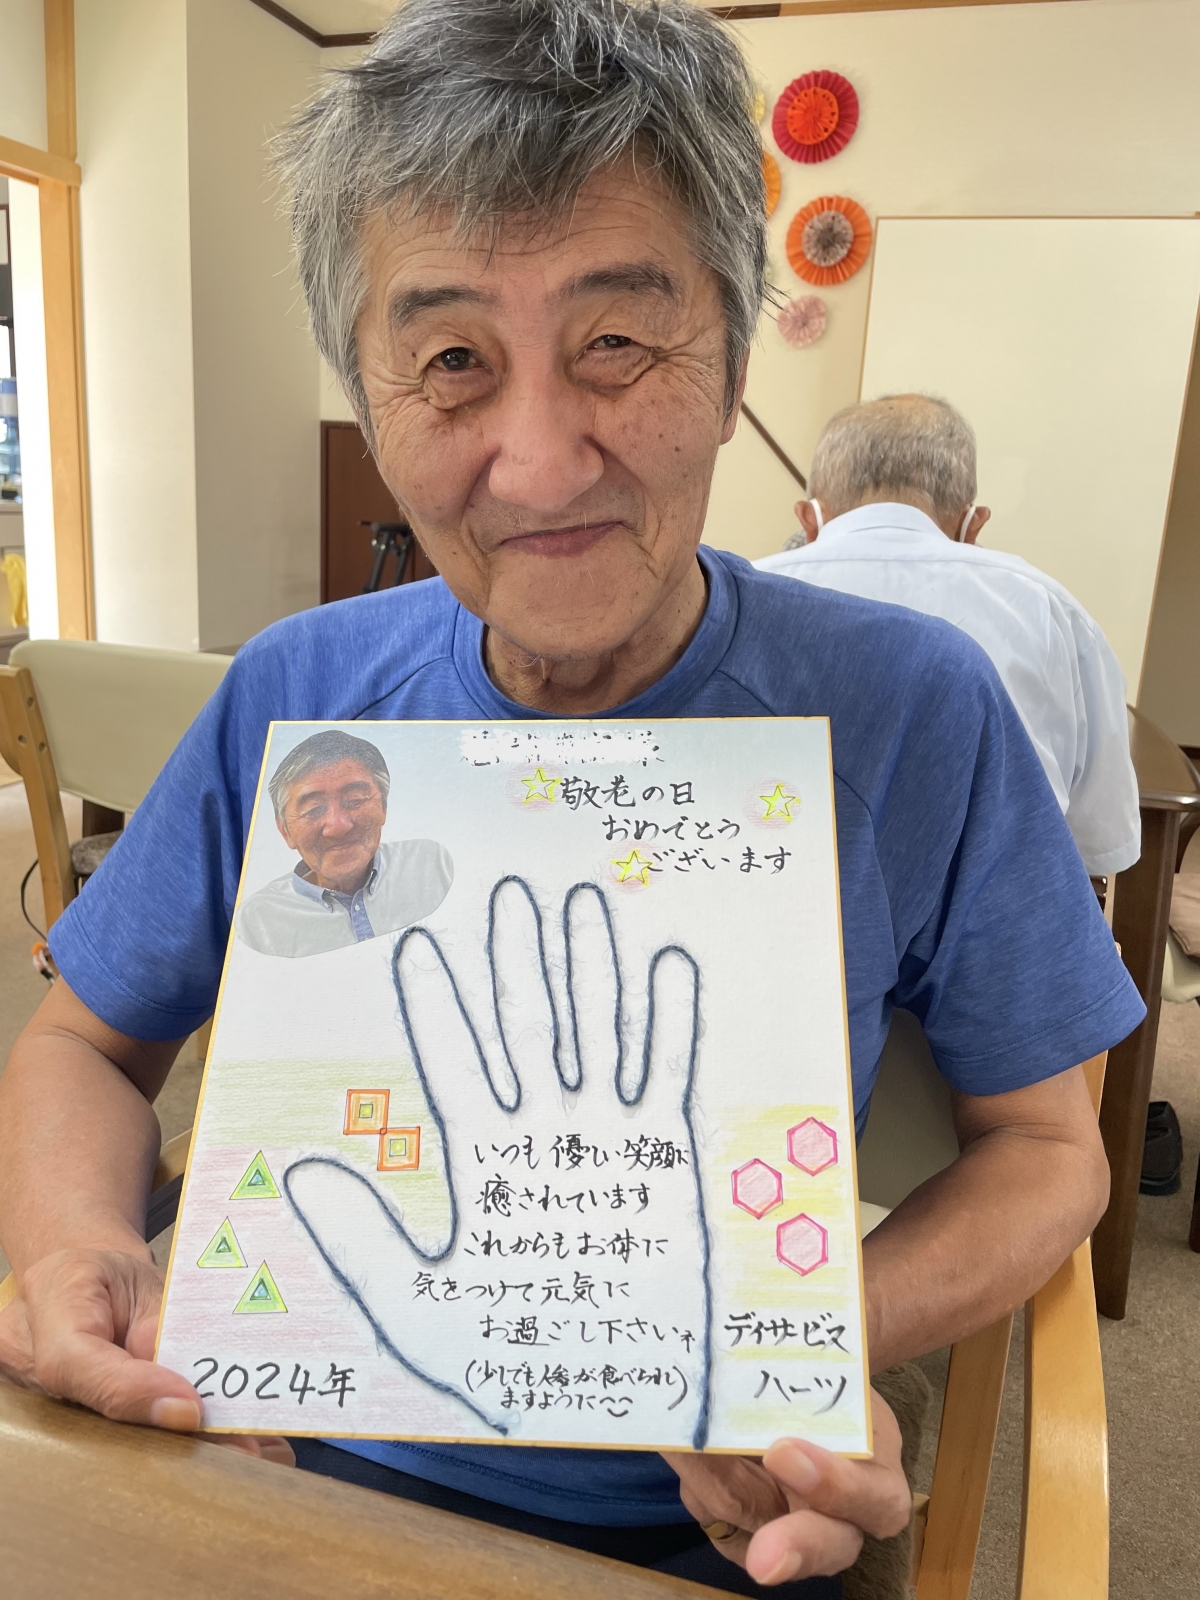 敬老の日
おめでとう
ございます
いつも優しい笑顔に
癒されています
これからもお体に
気をつけて元気に
お過ごし下さいネ
(少しでも人参が食べられ
ますように^^)
デイサービス
ハーツ
2024年